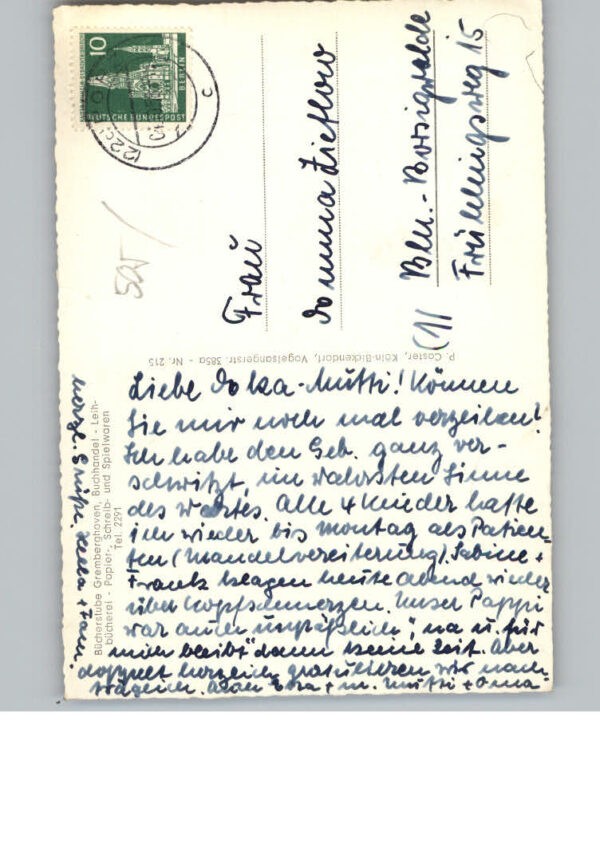 10
BERLIN
DEUTSCHE BUNDESPOST
c
Frau
Lieflow
(1)
Bln.-Borsigwalde
Frühlingsweg 15
P. Coster, Köln-Bickendorf, Vogelsangerstr. 385a - Nr. 215
Bücherstube Gremberghoven, Buchhandel - Leih-
bücherei - Papier-, Schreib- und Spielwaren
Tel. 2291
Liebe Mutti! Können
Sie mir noch mal verzeihen?
Ich habe den Geb. ganz ver-
schwitzt, im wahrsten Sinne
des Wortes. Alle 4 Kinder hatte
ich wieder bis Montag als Patien-
ten (Mandelvereiterung). Sabine +
Frank klagen heute abend wieder
über Kopfschmerzen. Unser Pappi
war auch unpäßlich", na u. für
mich bleibt dann keine Zeit. Aber
doppelt herzlich gratulieren wir nach-
träglich. Mutti + Oma
herzl. Grüße, + Fam.